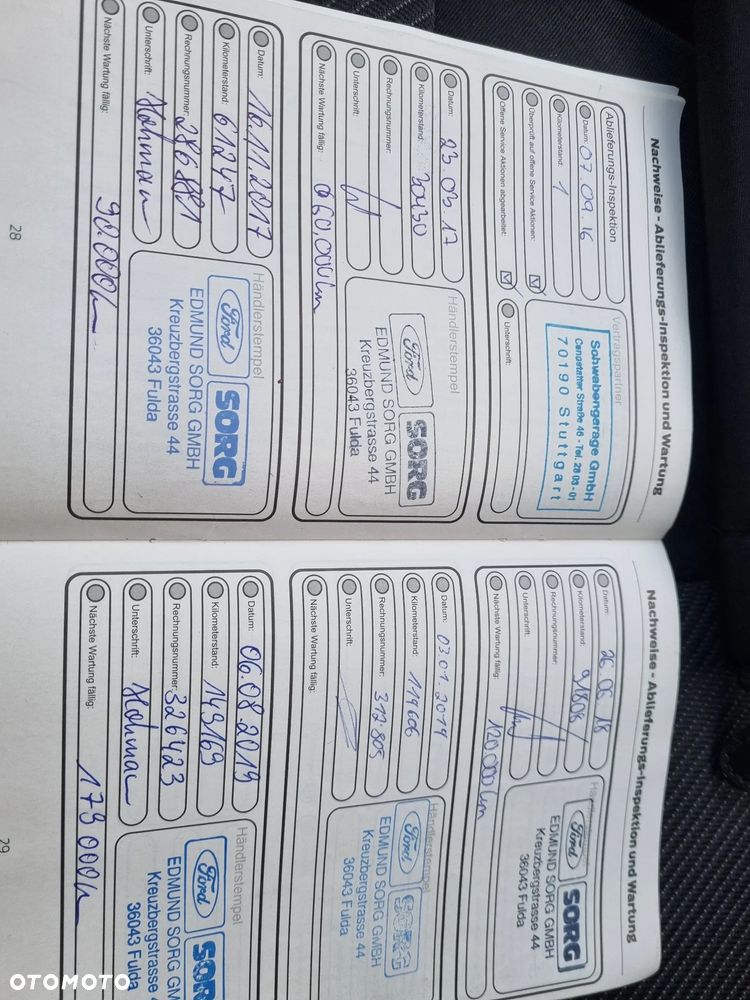 Nachweise - Ablieferungs-Inspektion und Wartung
Ablieferungs-Inspektion
Datum: 07 09. 16
Kilometerstand: 1
Überprüft auf offene Service Aktionen:
Offene Service Aktionen abgearbeitet:
Unterschrift:
Vertragspartner
Schwabengarage GmbH
Cannstatter Straße 46 - Tel. 28 03 - 01
70190 Stuttgart
Datum: 23.03.17
Kilometerstand: 30430
Rechnungsnummer:
Unterschrift:
Nächste Wartung fällig: 60.000km
Händlerstempel
Ford SORG
EDMUND SORG GMBH
Kreuzbergstrasse 44
36043 Fulda
Datum: 16.11.2017
Kilometerstand: 61247
Rechnungsnummer: 286881
Unterschrift:
Nächste Wartung fällig: 90.000
Händlerstempel
Ford SORG
EDMUND SORG GMBH
Kreuzbergstrasse 44
36043 Fulda
28
Nachweise - Ablieferungs-Inspektion und Wartung
Datum: 26 06. 18
Kilometerstand: 91808
Rechnungsnummer:
Unterschrift:
Nächste Wartung fällig: 120.000 km
Ford SORG
EDMUND SORG GMBH
Kreuzbergstrasse 44
36043 Fulda
Datum: 03 01. 2019
Kilometerstand: 119606
Rechnungsnummer: 312.805
Unterschrift:
Nächste Wartung fällig:
Händlerstempel
Ford SORG
EDMUND SORG GMBH
Kreuzbergstrasse 44
36043 Fulda
Datum: 06.08.2019
Kilometerstand: 149169
Rechnungsnummer: 326423
Unterschrift:
Nächste Wartung fällig: 179 000
Händlerstempel
Ford
EDMUND SORG GM
Kreuzbergstrasse 4
36043 Fulda
29
OTOMOTO